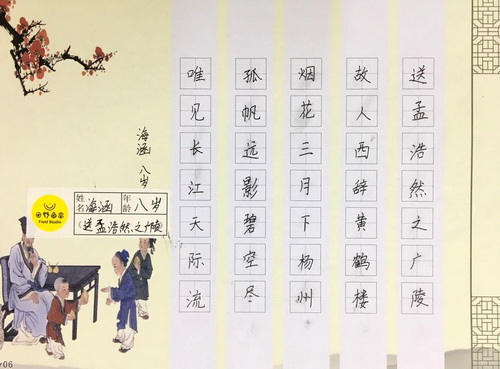 送孟浩然之广陵
故人西辞黄鹤楼
烟花三月下杨州
孤帆远影碧空尽
唯见长江天际流
海涵 八岁
田野画室
Field Studio
姓名 海涵 年龄 八岁
《送孟浩然之广陵》
06